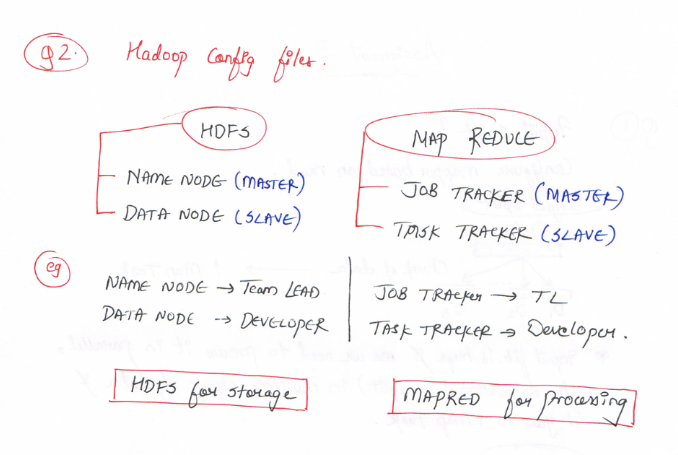 Q2. Hadoop Config files.
HDFS
NAME NODE (MASTER)
DATA NODE (SLAVE)
MAP REDUCE
JOB TRACKER (MASTER)
TASK TRACKER (SLAVE)
eg
NAME NODE → Team LEAD
DATA NODE → DEVELOPER
JOB TRACKER → TL
TASK TRACKER → Developer.
HDFS for storage
MAPRED for processing